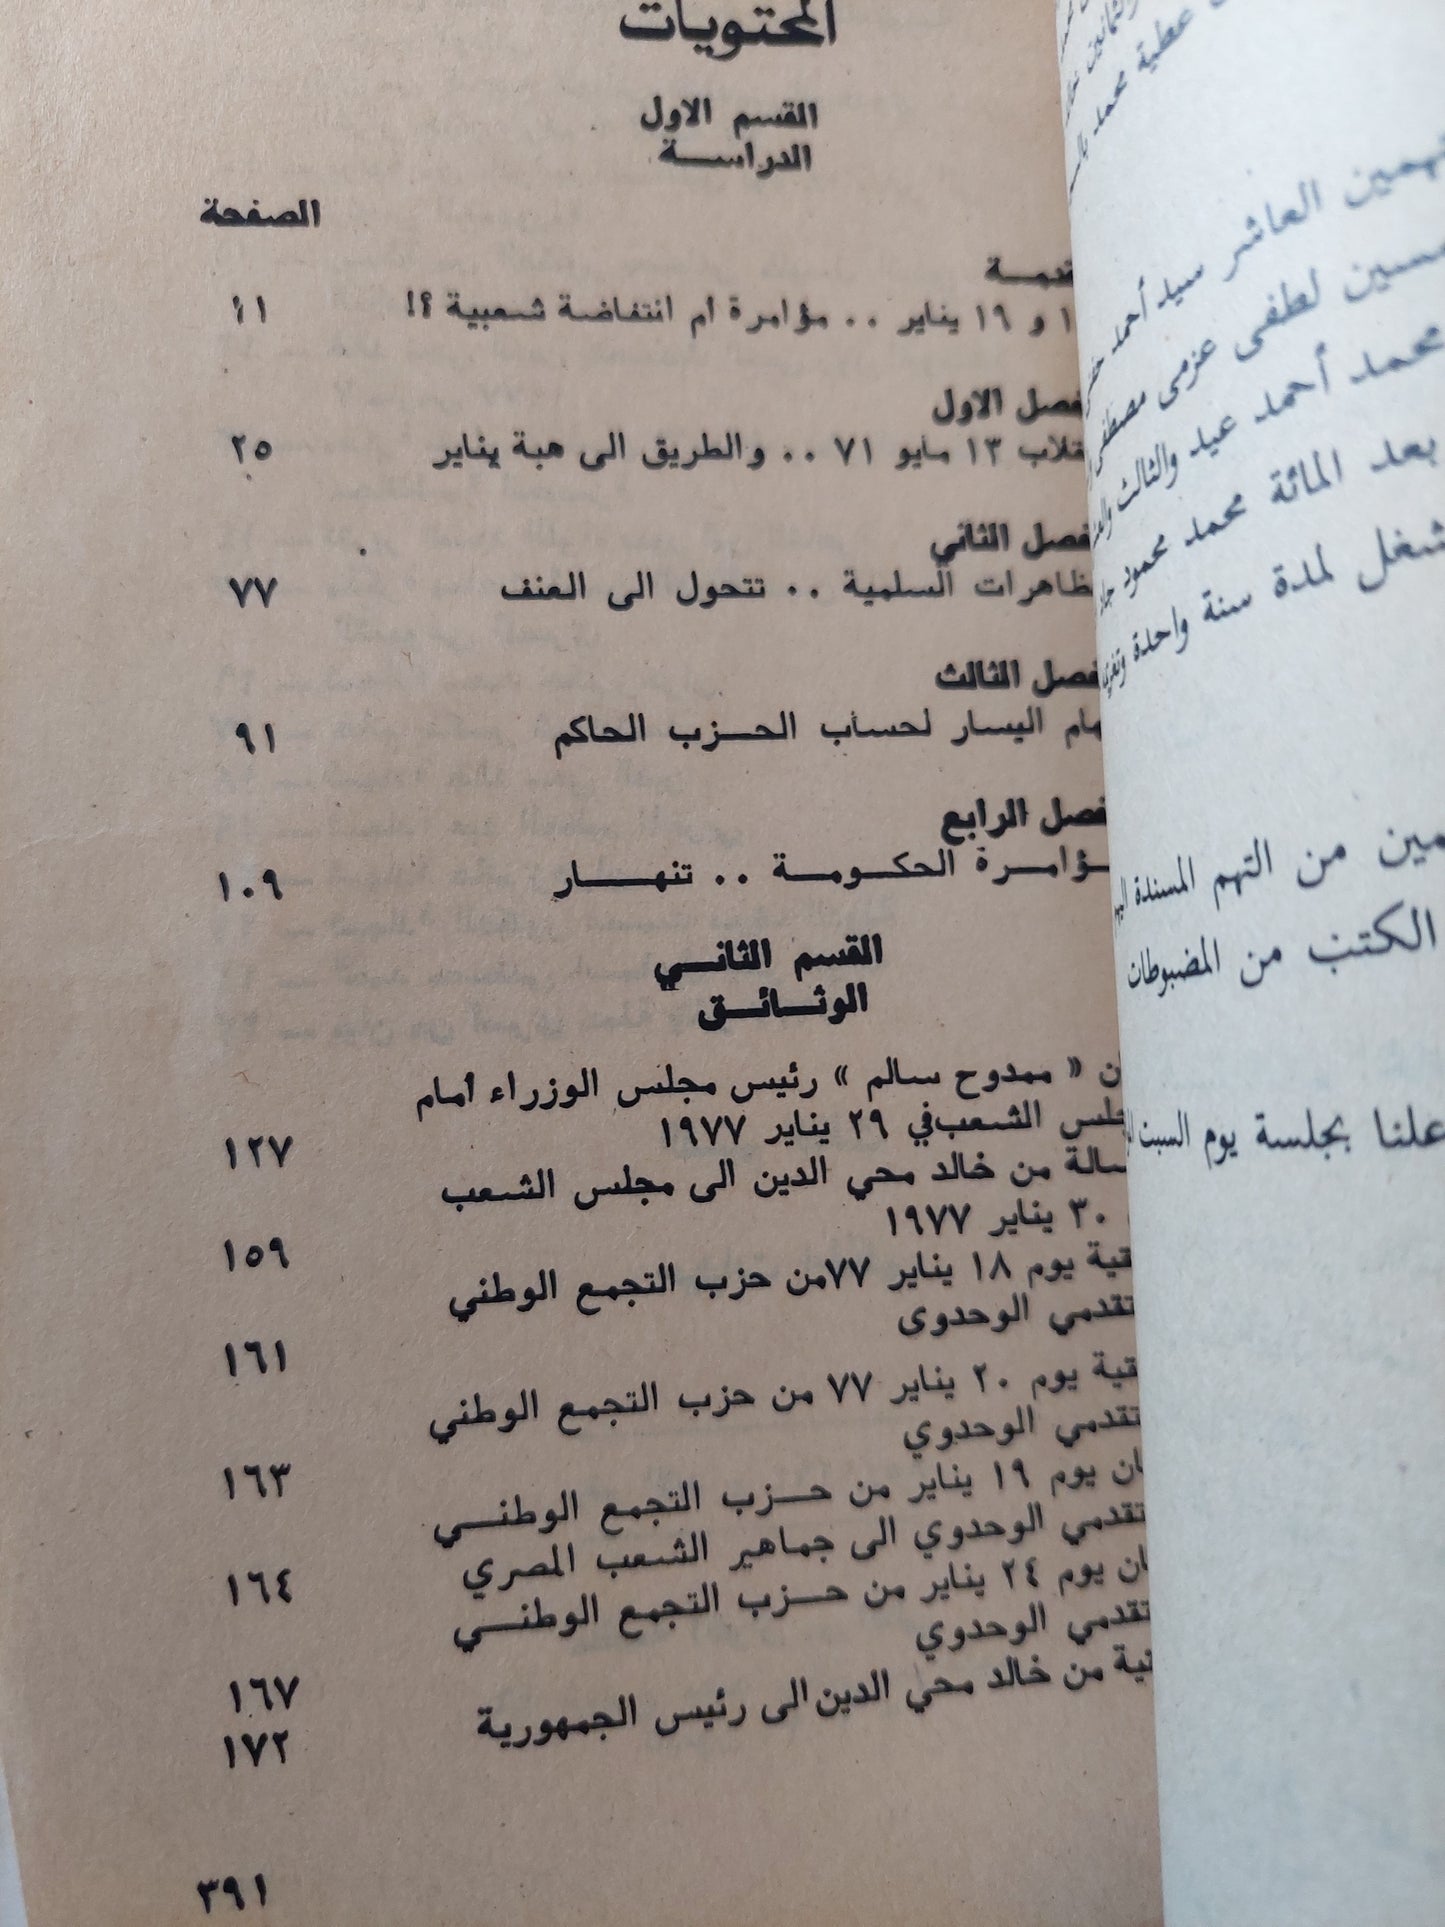 المحتويات
القسم الاول
الدراســـة
الصفحة
و ١٩ يناير .. مؤامرة أم انتفاضة شعبية ؟!
١١
الاول
١٣ مايو ٧١ .. والطريق الى هبة يناير
٢٥
الثاني
السلمية .. تتحول الى العنف
٧٧
الثالث
اليسار لحساب الحـــزب الحاكم
٩١
الرابع
الحكـــومـــة .. تنهـــــار
١٠٩
القسم الثانـــي
الوثـــائـــق
« ممدوح سالم » رئيس مجلس الوزراء أمام
الشعب في ٢٩ يناير ١٩٧٧
١٢٧
من خالد محي الدين الى مجلس الشعب
٣٠ يناير ١٩٧٧
١٥٩
يوم ١٨ يناير ٧٧من حزب التجمع الوطني
الوحدوى
١٦١
يوم ٢٠ يناير ٧٧ من حزب التجمع الوطني
الوحدوي
١٦٣
يوم ١٩ يناير من حـــزب التجمع الوطنـــي
الوحدوي الى جماهير الشعب المصري
١٦٤
يوم ٢٤ يناير من حـــزب التجمع الوطنـــي
الوحدوي
١٦٧
من خالد محي الدين الى رئيس الجمهورية
١٧٢
٣٩١
عطية محمد
العاشر سيد أحمد
لطفى عزمى مصطفى
محمد أحمد عيد والثالث
بعد المائة محمد محمود
لمدة سنة واحدة
من التهم المسندة
الكتب من المضبوطات
علنا بجلسة يوم السبت